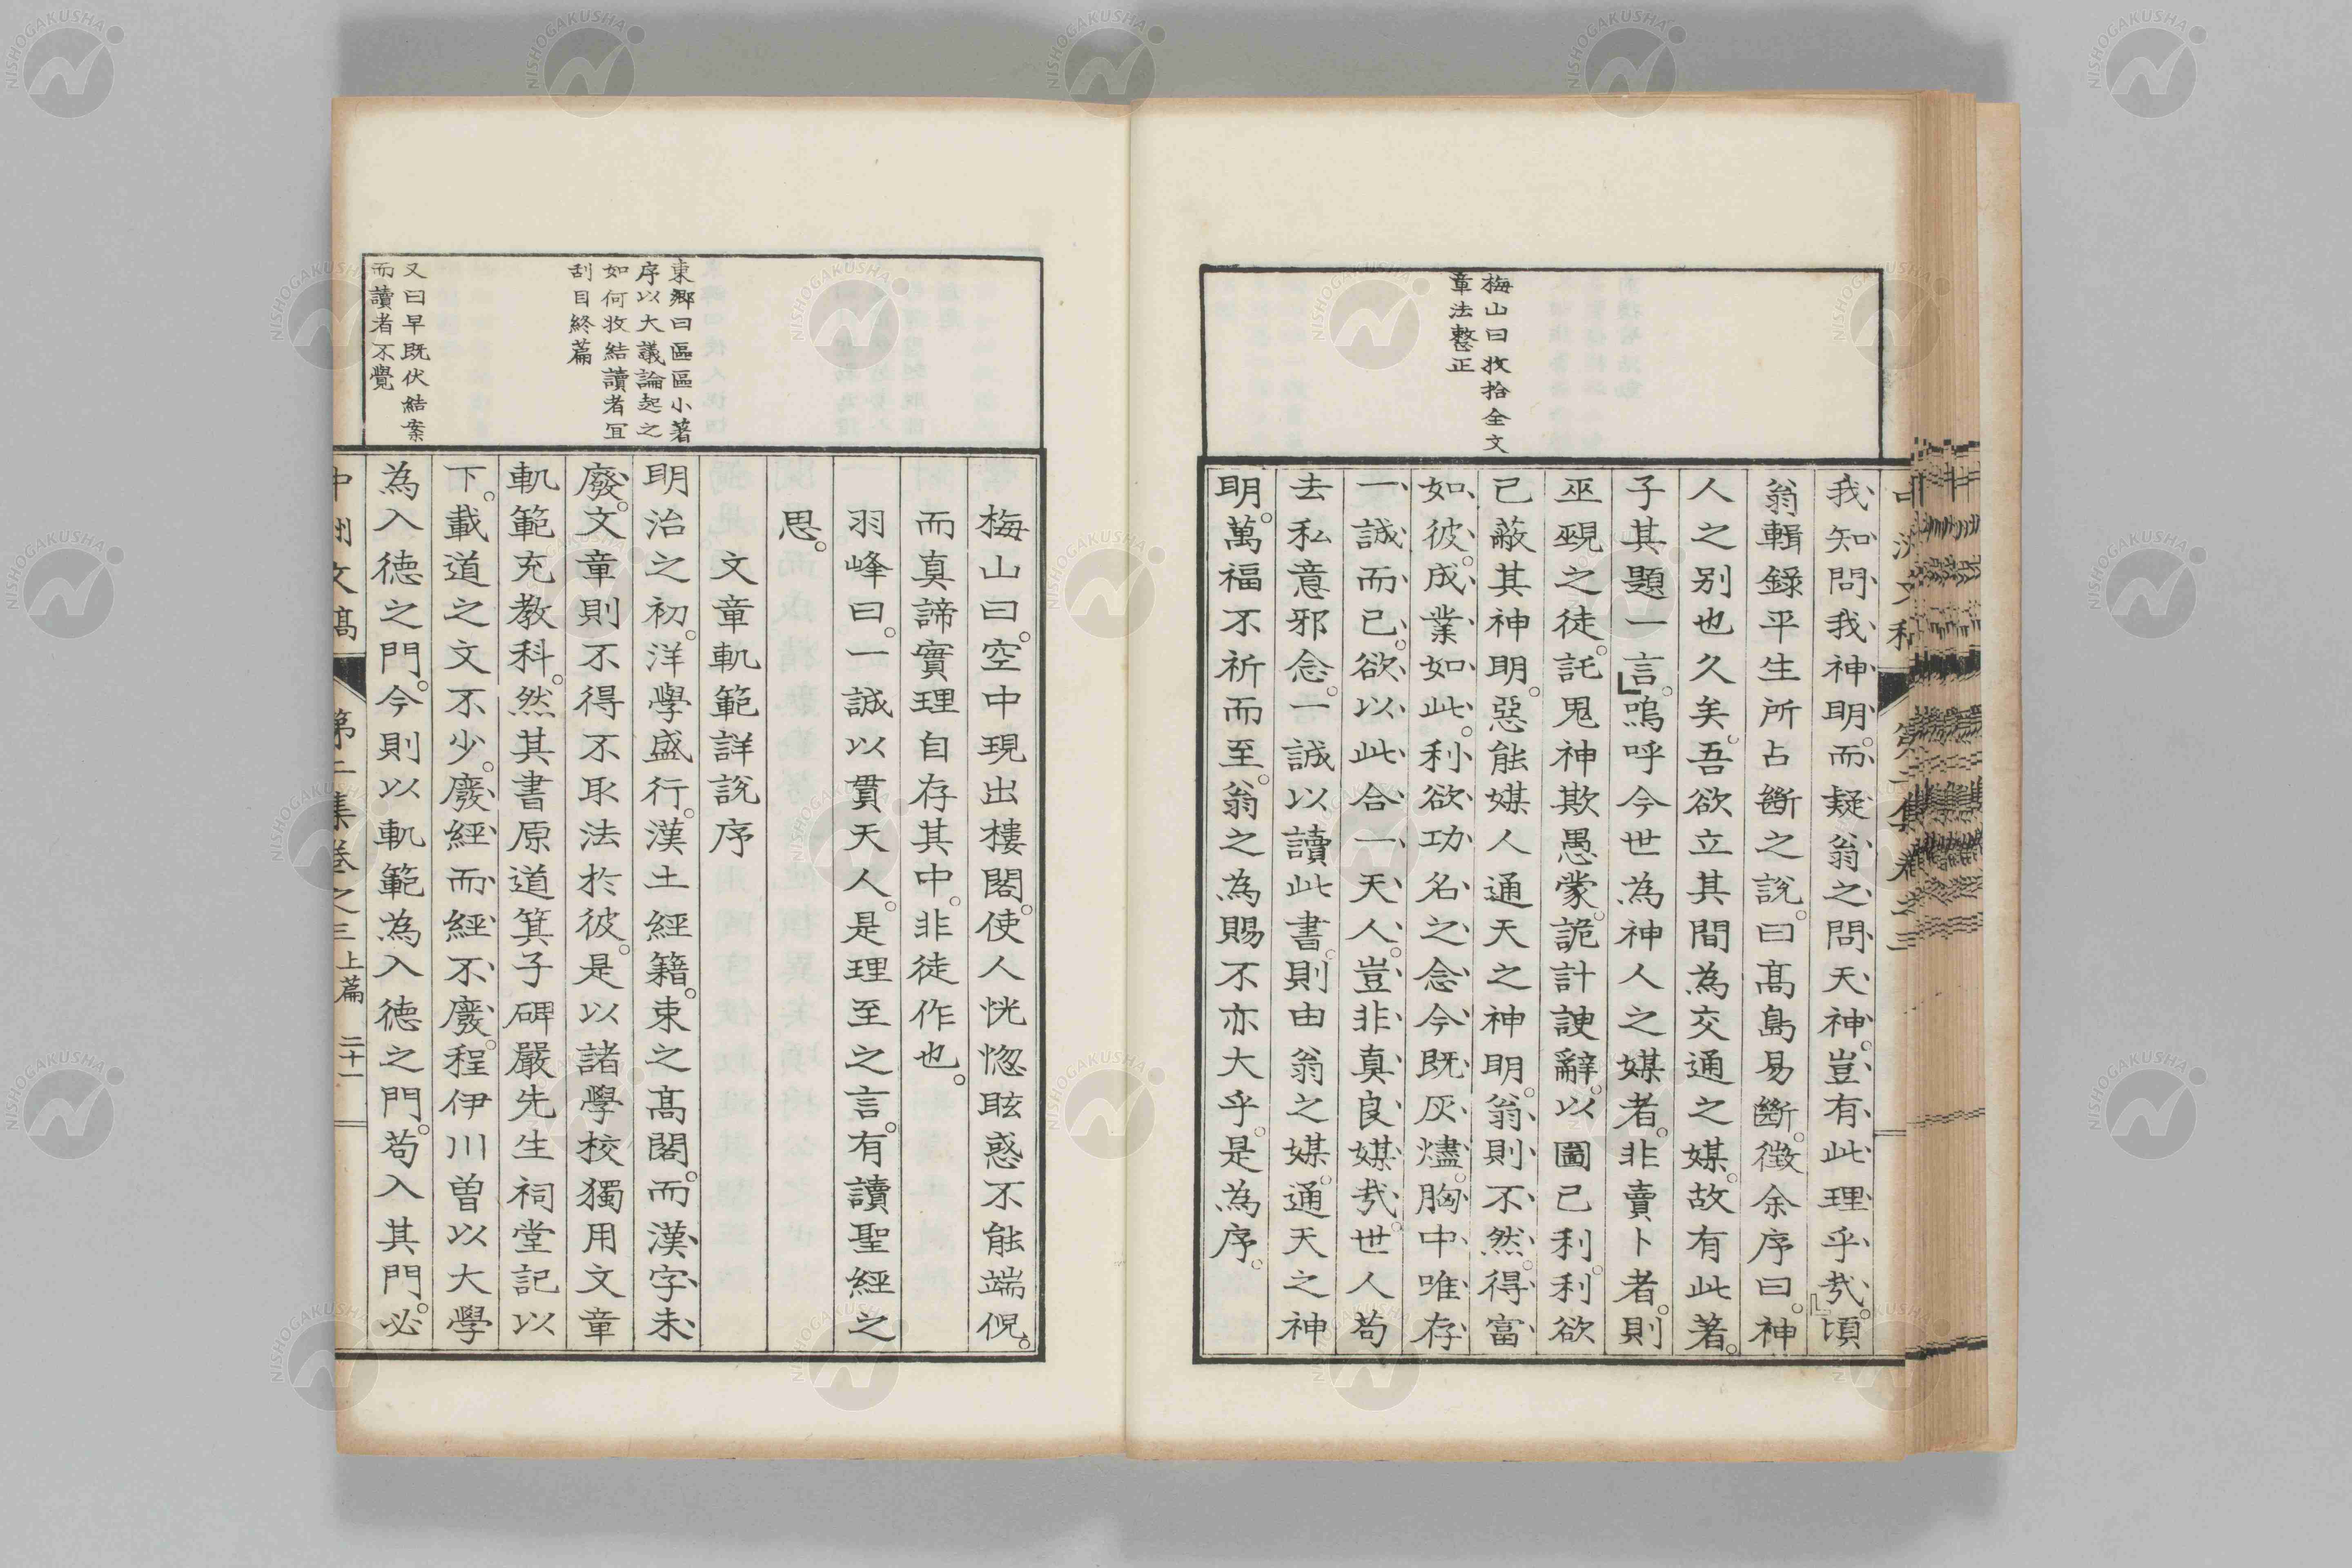 梅山曰牧拾全文
章法整正
我知問我神明。而疑翁之問天神。豈有此理乎哉。頃
翁輯錄平生所占斷之說。曰髙島易斷。徵余序曰。神
人之別也久矣。吾欲立其間為交通之媒。故有此著。
子其題一言。嗚呼今世為神人之媒者。非賣卜者。則
巫覡之徒。託鬼神欺愚蒙。詭計諛辭。以圖己利。利欲
已蔽其神明。惡能媒人通天之神明。翁則不然。得富
如彼。成業如此。利欲功名之念今既灰燼。胸中唯存
一誠而已。欲以此合一天人。豈非真良媒哉。世人苟
去私意邪念。一誠以讀此書。則由翁之媒。通天之神
明。萬福不祈而至。翁之為賜不亦大乎。是為序。
東鄉曰區區小著
序以大議論起之
如何收結讀者宜
刮目終篇
又曰早既伏結案
而讀者不覺
梅山曰。空中現出樓閣。使人恍惚眩惑不能端倪。
而真諦實理自存其中。非徒作也。
羽峰曰。一誠以貫天人。是理至之言。有讀聖經之
思。
文章軌範詳說序
明治之初。洋學盛行。漢土經籍。束之髙閣。而漢字未
廢。文章則不得不取法於彼。是以諸學校獨用文章
軌範充教科。然其書原道箕子碑嚴先生祠堂記以
下。載道之文不少。廢經而經不廢。程伊川曽以大學
為入德之門。今則以軌範為入德之門。苟入其門。必
中洲文稿
第二集卷之三
上篇
二十一
NISHOGAKUSHA